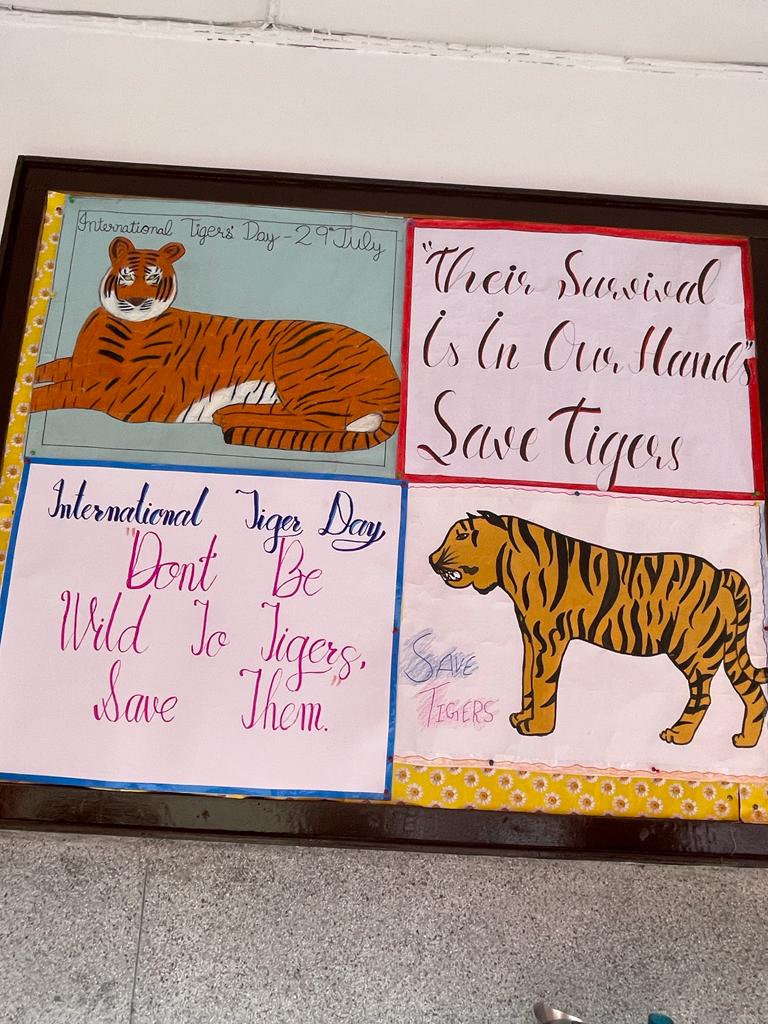 International Tigers' Day - 29th July
"Their Survival
Is In Our Hands"
Save Tigers
International Tiger Day
"Dont Be
Wild To Tigers,
Save Them."
SAVE
TIGERS